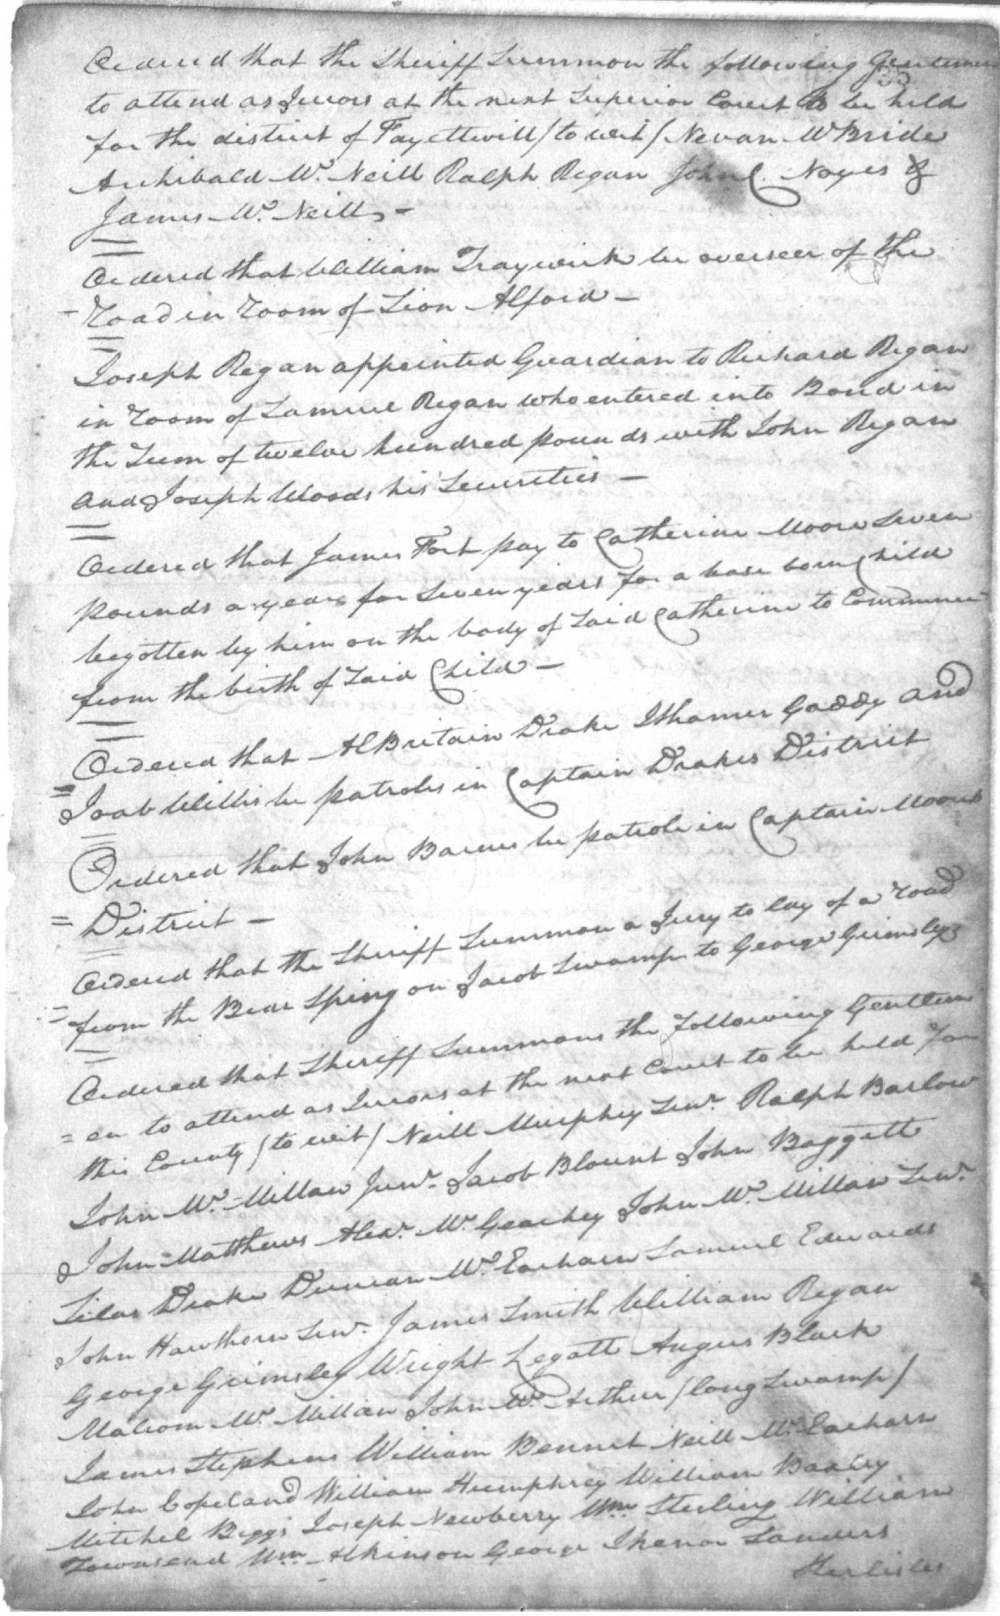 Ordered that the Sheriff Summon the following Gentlemen
to attend as Jurors at the next Superior Court to be held
for the district of Fayettvill (to wit) Nevan McBride
Archibald Mc. Neill Ralph Regan John C. Noyes &
James Mc. Neill -
Ordered that William Traywick be overseer of the
Road in room of Lion Alford -
Joseph Regan appointed Guardian to Richard Regan
in room of Samuel Regan who entered into Bond in
the Sum of twelve hundred pounds with John Regan
and Joseph Woods his Securities -
Ordered that James Fort pay to Catherine Moore Seven
pounds a year for Seven years for a base born Child
begotten by him on the body of Said Catherine to Commence
from the birth of Said Child -
Ordered that AlBritain Drake Ithamer Gaddy and
Joab Willis be patroles in Captain Drakes District
Ordered that John Barnes be patrole in Captain Moores
= District -
Ordered that the Sheriff Summon a Jury to lay of a road
= from the Bear Spring on Jacob Swamp to George Grimsleys
Ordered that Sheriff Summons the following Gentlem
= en to attend as Jurors at the next Court to be held for
this County (to wit) Neill Murphey Senr. Ralph Barlow
John Mc. Millan Junr. Jacob Blount John Baggett
John Matthews Alexr. Mc. Geachey John Mc. Millan Senr.
Silas Drake Duncan Mc. Eachern Samuel Edwards
John Hawthorn Senr. James Smith William Regan
George Grimsley Wright Legatt Angus Black
Malcom Mc. Millan John Mc. Arthur (long Swamp)
James Stephens William Bennet Neill Mc. Eachern
John Copeland William Humphrey William Baxley
Mitchel Biggs Joseph Newberry Wm. Sterling William
Townsend Wm. Atkinson George Ikener Sanders